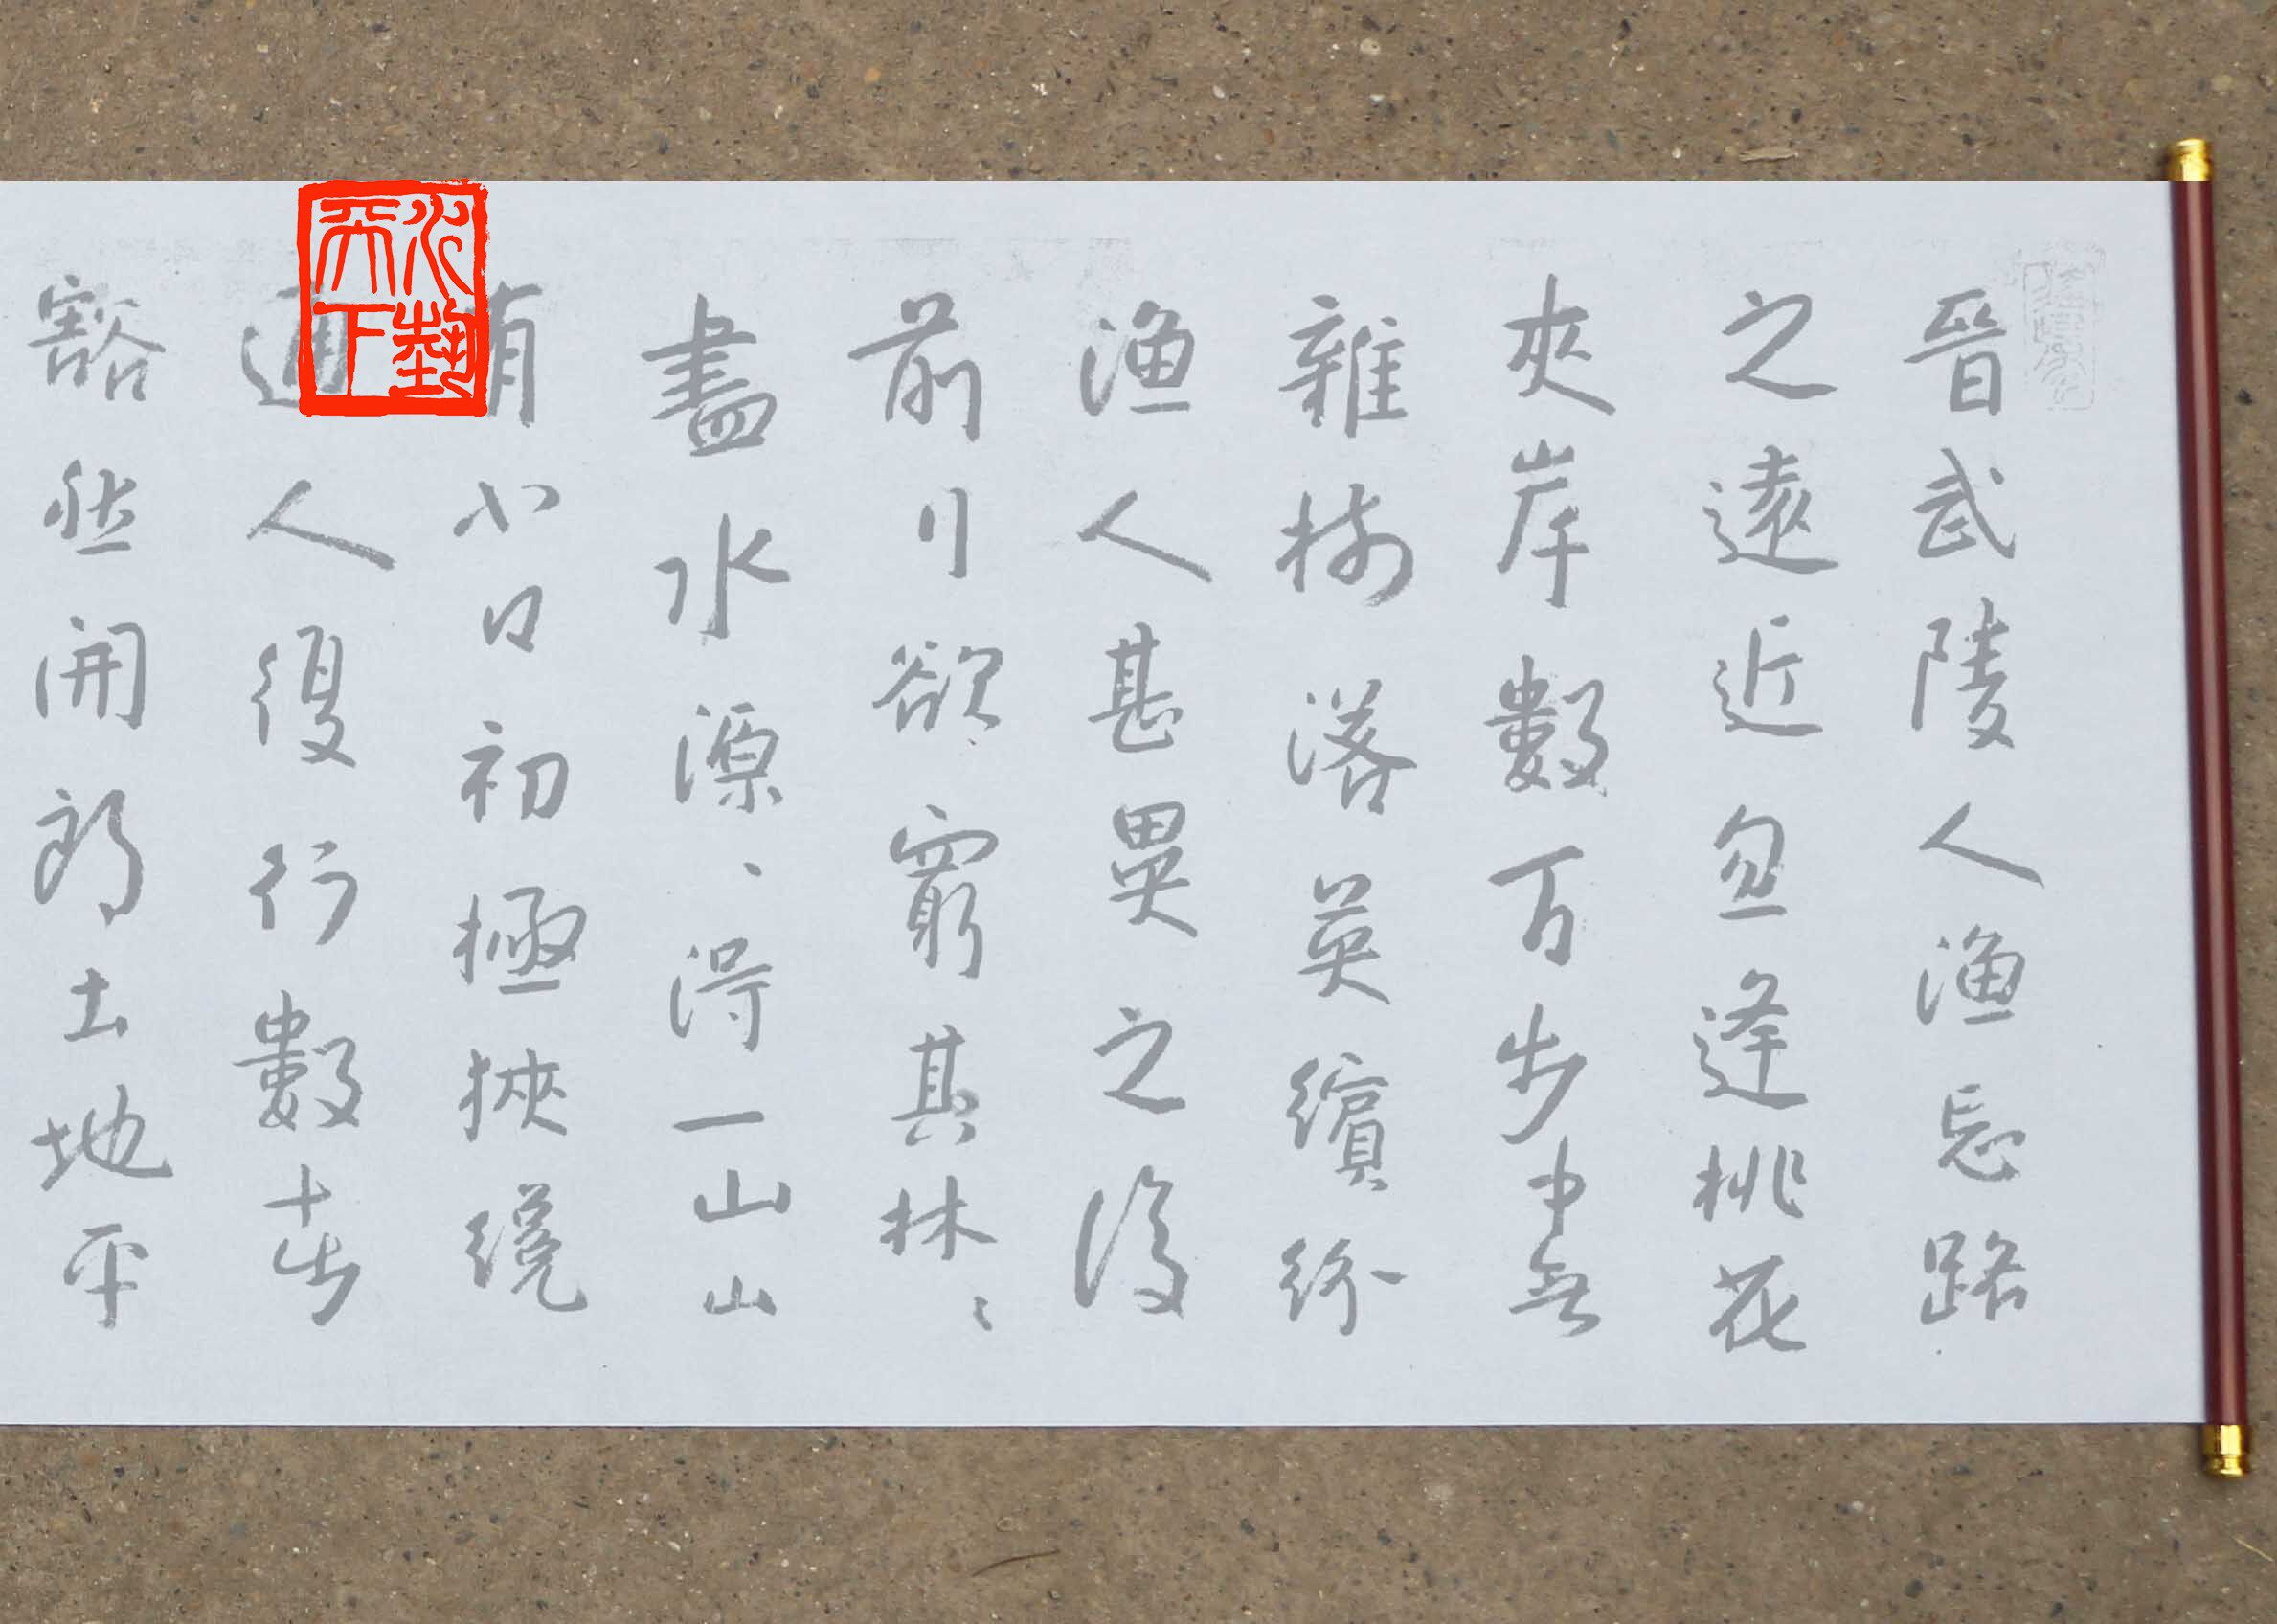 晉武陵人漁忘路
之遠近忽逢桃花
夾岸數百步中無
雜樹落英繽紛
漁人甚異之復
前行欲窮其林、
盡水源、得一山山
有小口初極狹纔
通人復行數十步
豁然開朗土地平
冰封天下